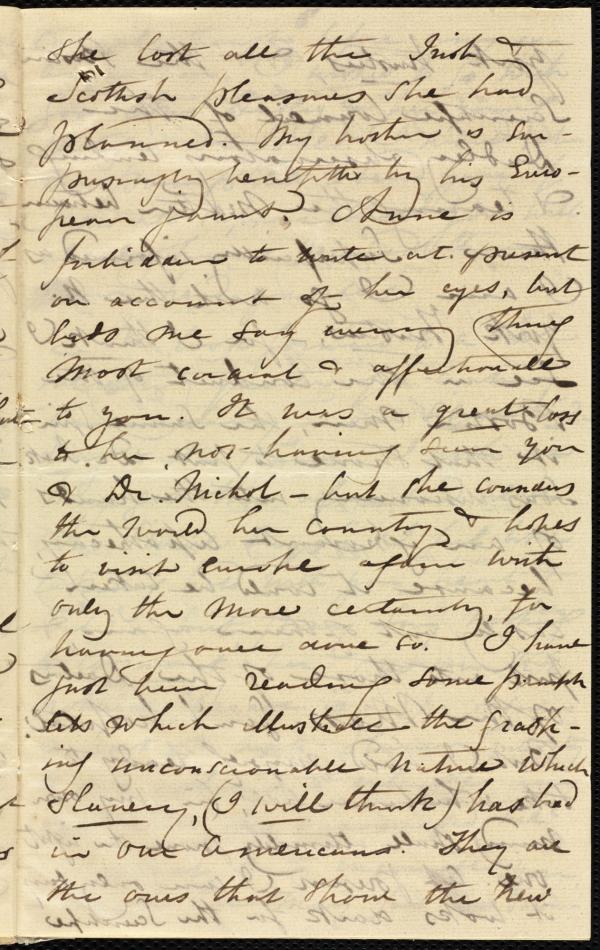 She lost all the Irish &
Scottish pleasures she had
planned. My brother is sur-
prisingly benefitted by his Euro-
pean jaunt. Anne is
forbidden to write at present
on account of her eyes, but
bids me say every thing
most cordial & affectionate
to you. It was a great loss
to her not having seen you
& Dr. Nichol - but she considers
the world her country & hopes
to visit Europe again with
only the more certainty, for
having once done so. I have
just been reading some pamph
lets which illustrate the grasp-
ing unconscionable nature which
Slavery, (I will think) has bred
in our Americans. They are
the ones that show the New